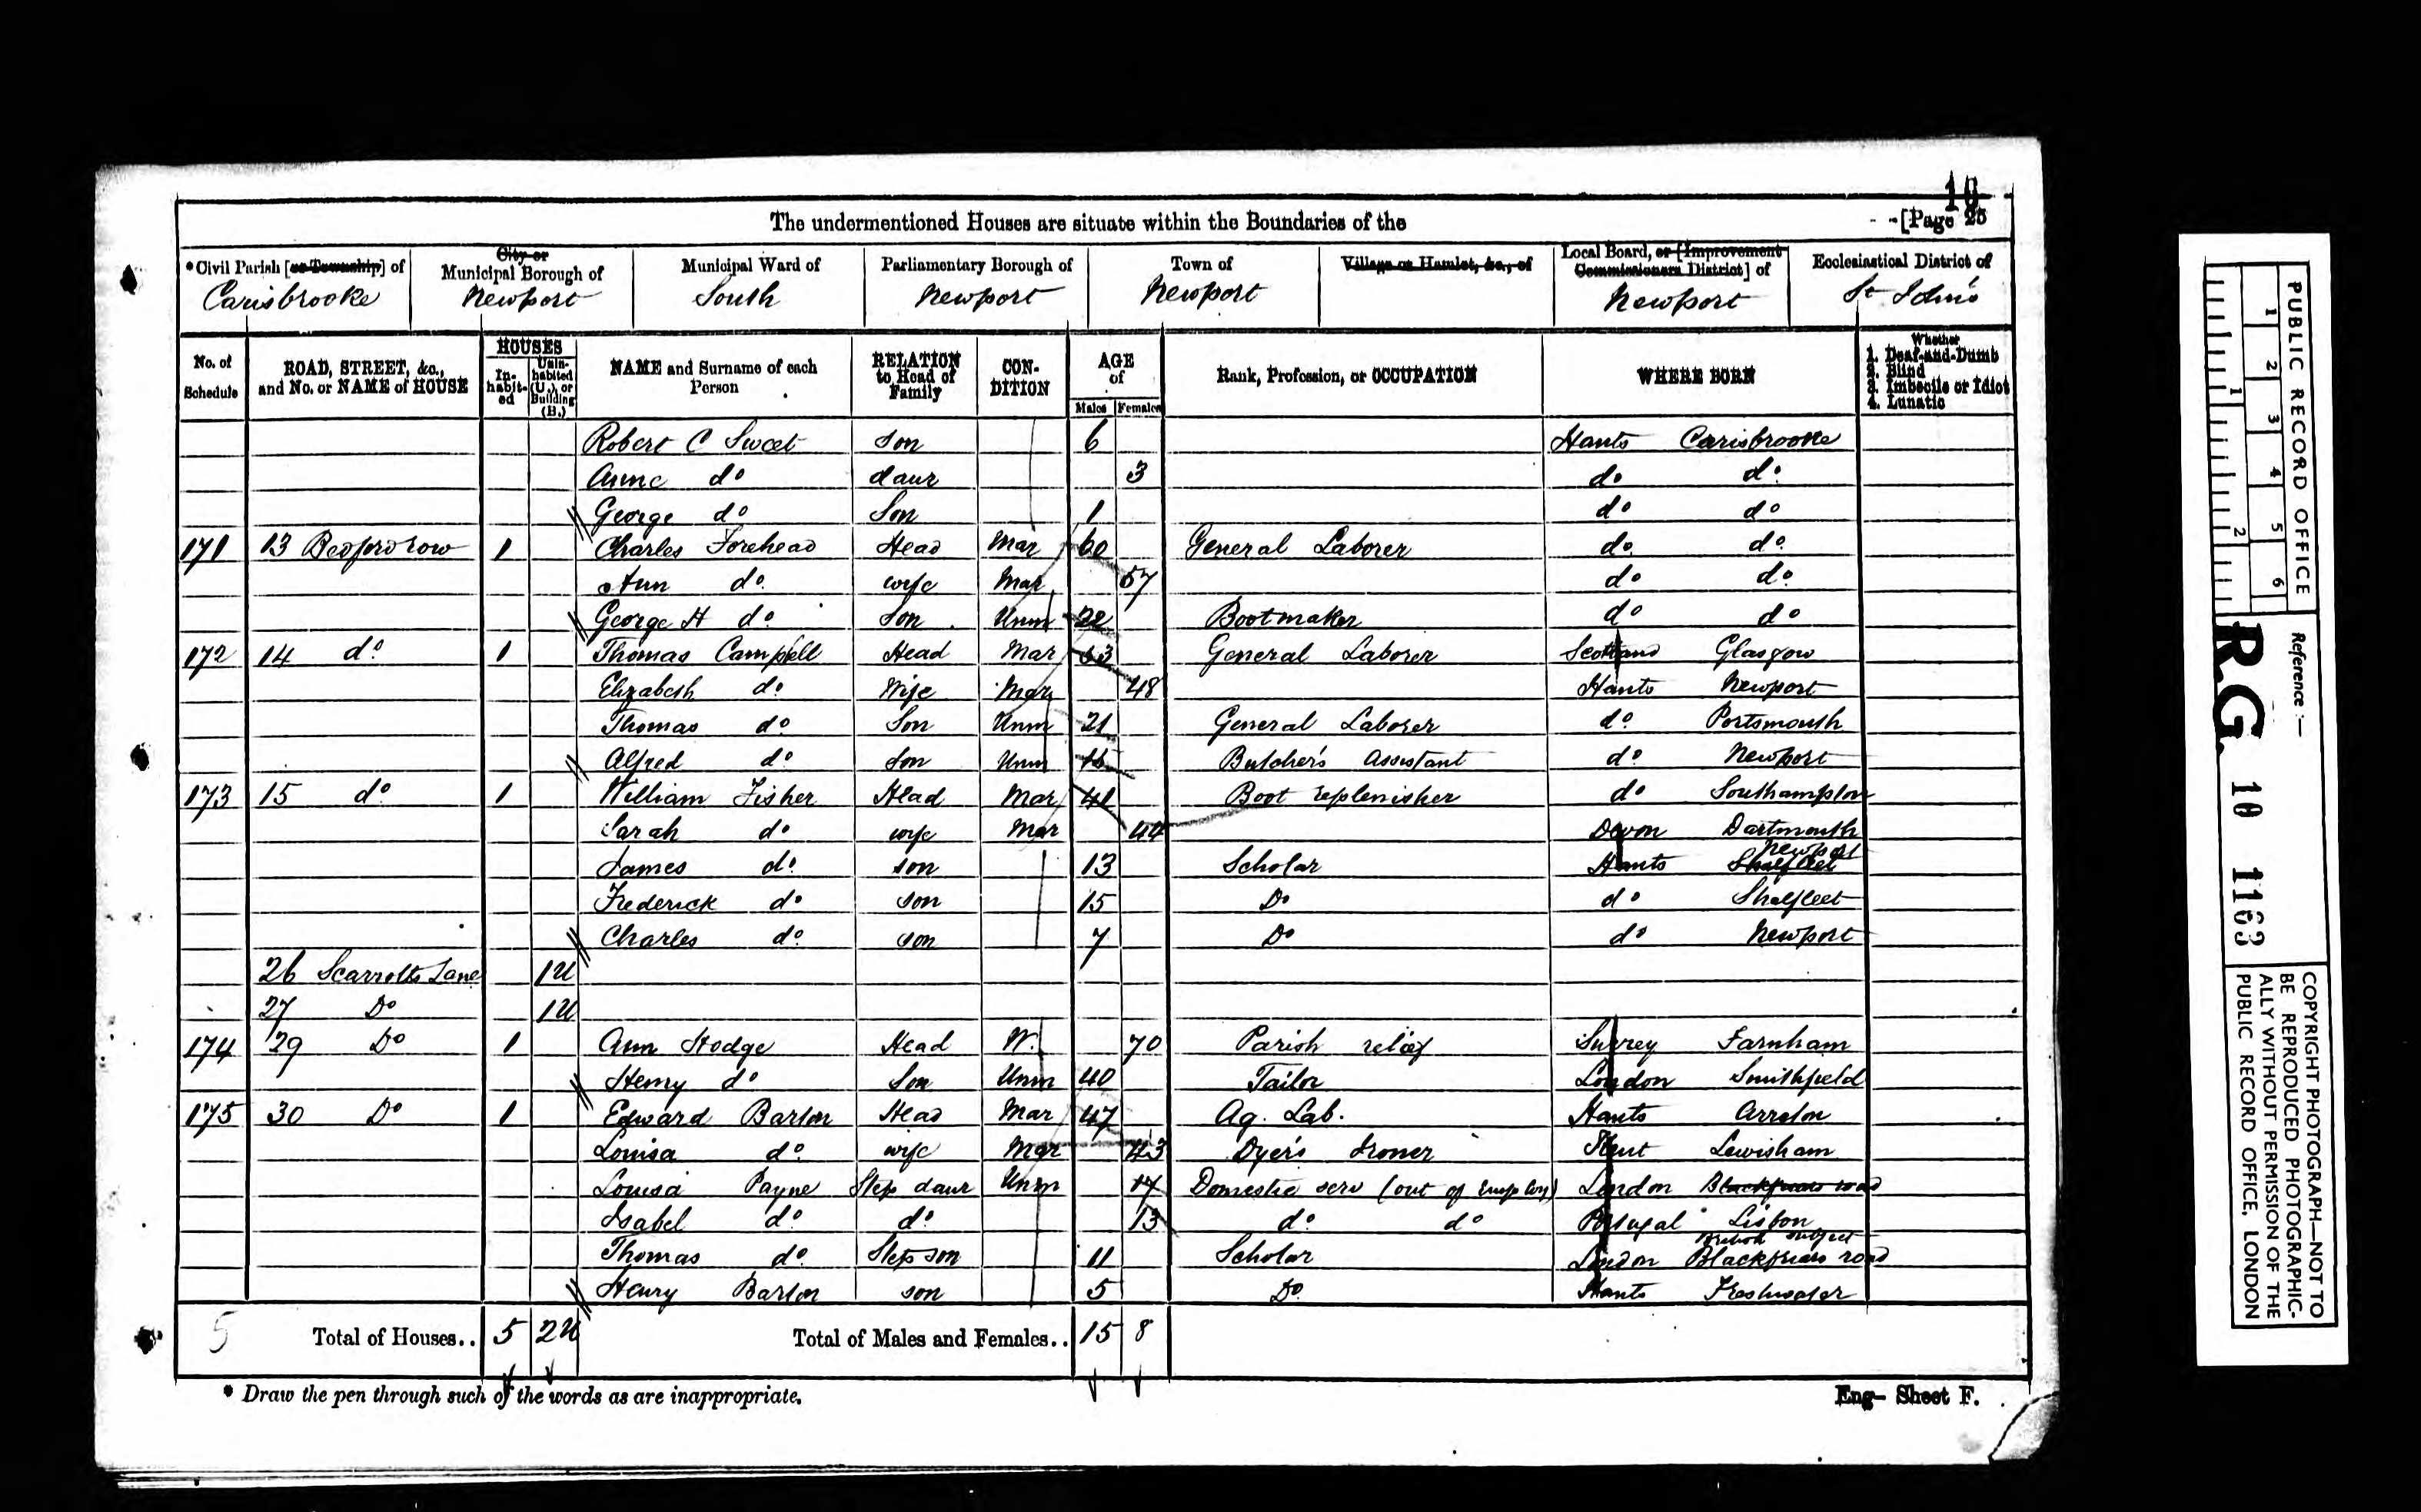 16
The undermentioned Houses are situate within the Boundaries of the
[Page 25
*Civil Parish [or Township] of
Carisbrooke
City or Municipal Borough of
Newport
Municipal Ward of
South
Parliamentary Borough of
Newport
Town of
Newport
Village or Hamlet, &c., of
Local Board, or [Improvement Commissioners District] of
Newport
Ecclesiastical District of
St John's
No. of Schedule
ROAD, STREET, &c., and No. or NAME of HOUSE
HOUSES
In-habit-ed
Unin-habited (U.), or Building (B.)
NAME and Surname of each Person
RELATION to Head of Family
CON-DITION
AGE of
Males
Females
Rank, Profession, or OCCUPATION
WHERE BORN
Whether
1. Deaf-and-Dumb
2. Blind
3. Imbecile or Idiot
4. Lunatic
Robert C Sweet Son 6 Hants Carisbrooke
Anne do daur 3 do do
George do Son 1 do do
171 13 Bedford row 1 Charles Forehead Head Mar 60 General Laborer do do
Ann do wife Mar 57 do do
George H do Son Unm 22 Bootmaker do do
172 14 do 1 Thomas Campbell Head Mar 53 General Laborer Scotland Glasgow
Elizabeth do Wife Mar 48 Hants Newport
Thomas do Son Unm 21 General Laborer do Portsmouth
Alfred do Son Unm 16 Butcher's Assistant do Newport
173 15 do 1 William Fisher Head Mar 41 Boot replenisher do Southampton
Sarah do wife Mar 44 Devon Dartmouth
James do son 13 Scholar Hants Shalfleet Newport
Frederick do son 15 Do do Shalfleet
Charles do son 7 Do do Newport
26 Scarrotts Lane 1U
27 Do 1U
174 29 Do 1 Ann Hodge Head W. 70 Parish relief Surrey Farnham
Henry do Son Unm 40 Tailor London Smithfield
175 30 Do 1 Edward Barton Head Mar 47 Ag. Lab. Hants Arreton
Louisa do wife Mar 43 Dyer's Ironer Kent Lewisham
Louisa Payne Step daur Unm 17 Domestic serv (out of Employ) London Blackfriars road
Isabel do do 13 do do Portugal Lisbon
British subject
Thomas do Step son 11 Scholar London Blackfriars road
Henry Barton son 5 Do Hants Freshwater
5 Total of Houses.. 5 2U Total of Males and Females.. 15 8
* Draw the pen through such of the words as are inappropriate.
Eng- Sheet F.
PUBLIC RECORD OFFICE
1 2 3 4 5 6
1 2
Reference:-
R.G. 10 1163
COPYRIGHT PHOTOGRAPH—NOT TO
BE REPRODUCED PHOTOGRAPHIC-
ALLY WITHOUT PERMISSION OF THE
PUBLIC RECORD OFFICE, LONDON